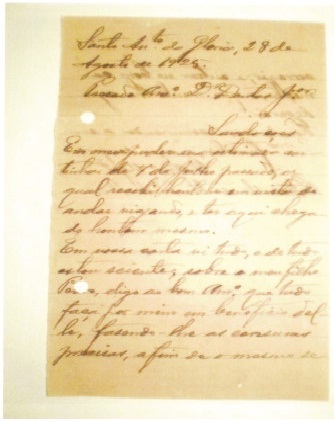 Santo Anto. do Gloria, 28 de
Agosto de 1925.
Prezado Amo.
Saudações
Em meu poder
de 7 de Julho passado, o
qual recebi hontem em vista de
andar viajando, e ter aqui chega
do hontem mesmo.
Em vossa carta vi tudo, e de tudo
estou sciente; sobre o meu filho
digo ao bom Amo. que tudo
faça por mim em beneficio del
le, fazendo-lhe as censuras
precisas, a fim de o mesmo se